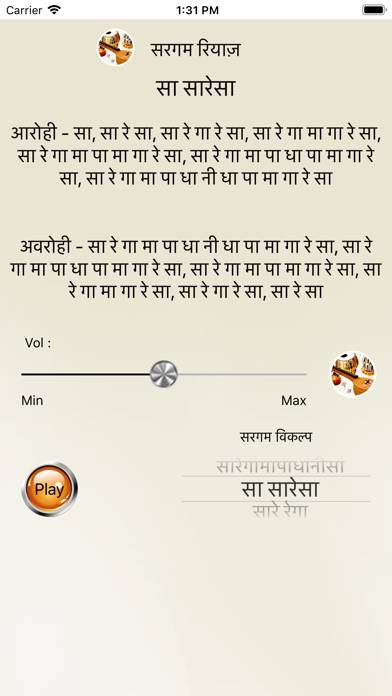 Carrier 1:31 PM
सरगम रियाज़
सा सारेसा
आरोही - सा, सा रे सा, सा रे गा रे सा, सा रे गा मा गा रे सा,
सा रे गा मा पा मा गा रे सा, सा रे गा मा पा धा पा मा गा रे
सा, सा रे गा मा पा धा नी धा पा मा गा रे सा
अवरोही - सा रे गा मा पा धा नी धा पा मा गा रे सा, सा रे
गा मा पा धा पा मा गा रे सा, सा रे गा मा पा मा गा रे सा, सा
रे गा मा गा रे सा, सा रे गा रे सा, सा रे सा
Vol :
Min Max
सरगम विकल्प
सारेगामापाधानीसा
Play सा सारेसा
सारे रेगा